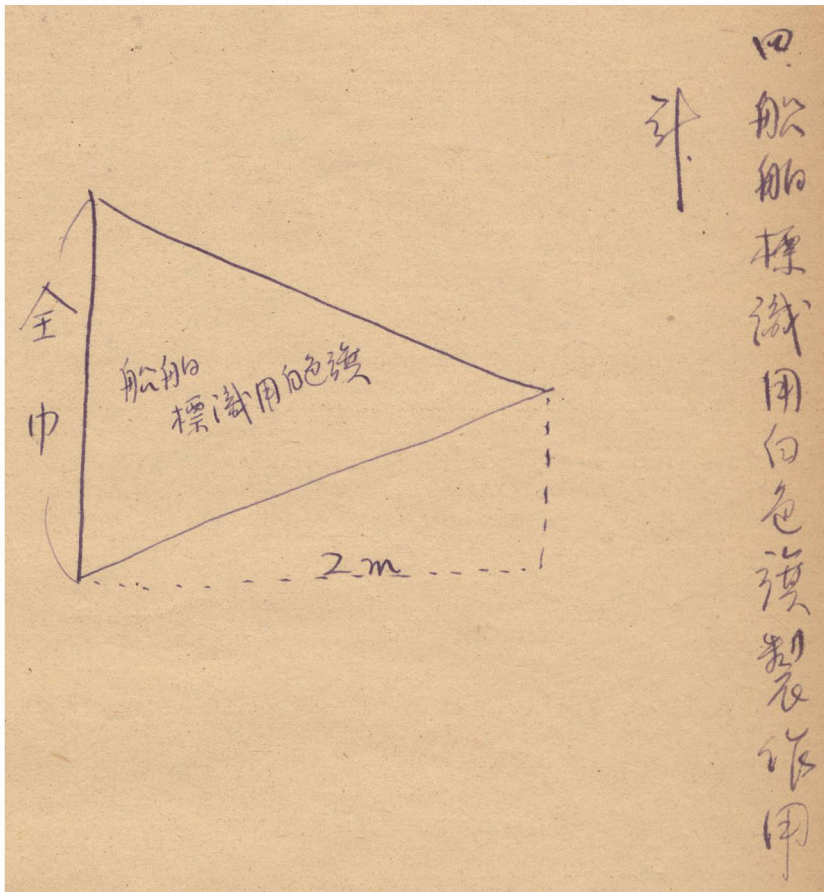 四.船舶標識用白色旗製作用
計
全巾
船舶
標識用白色旗
2m